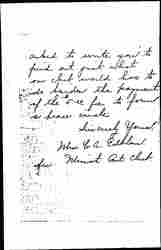 asked to write you to
find out just what
our club would have to
do besides the payment
of the fee for to form
a base
Sincerely Yours
Mrs. C. A.
for Art Club